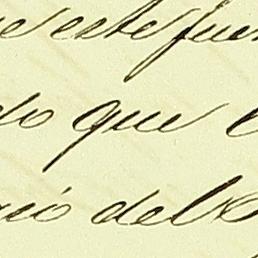 este fue
do que e
ció del